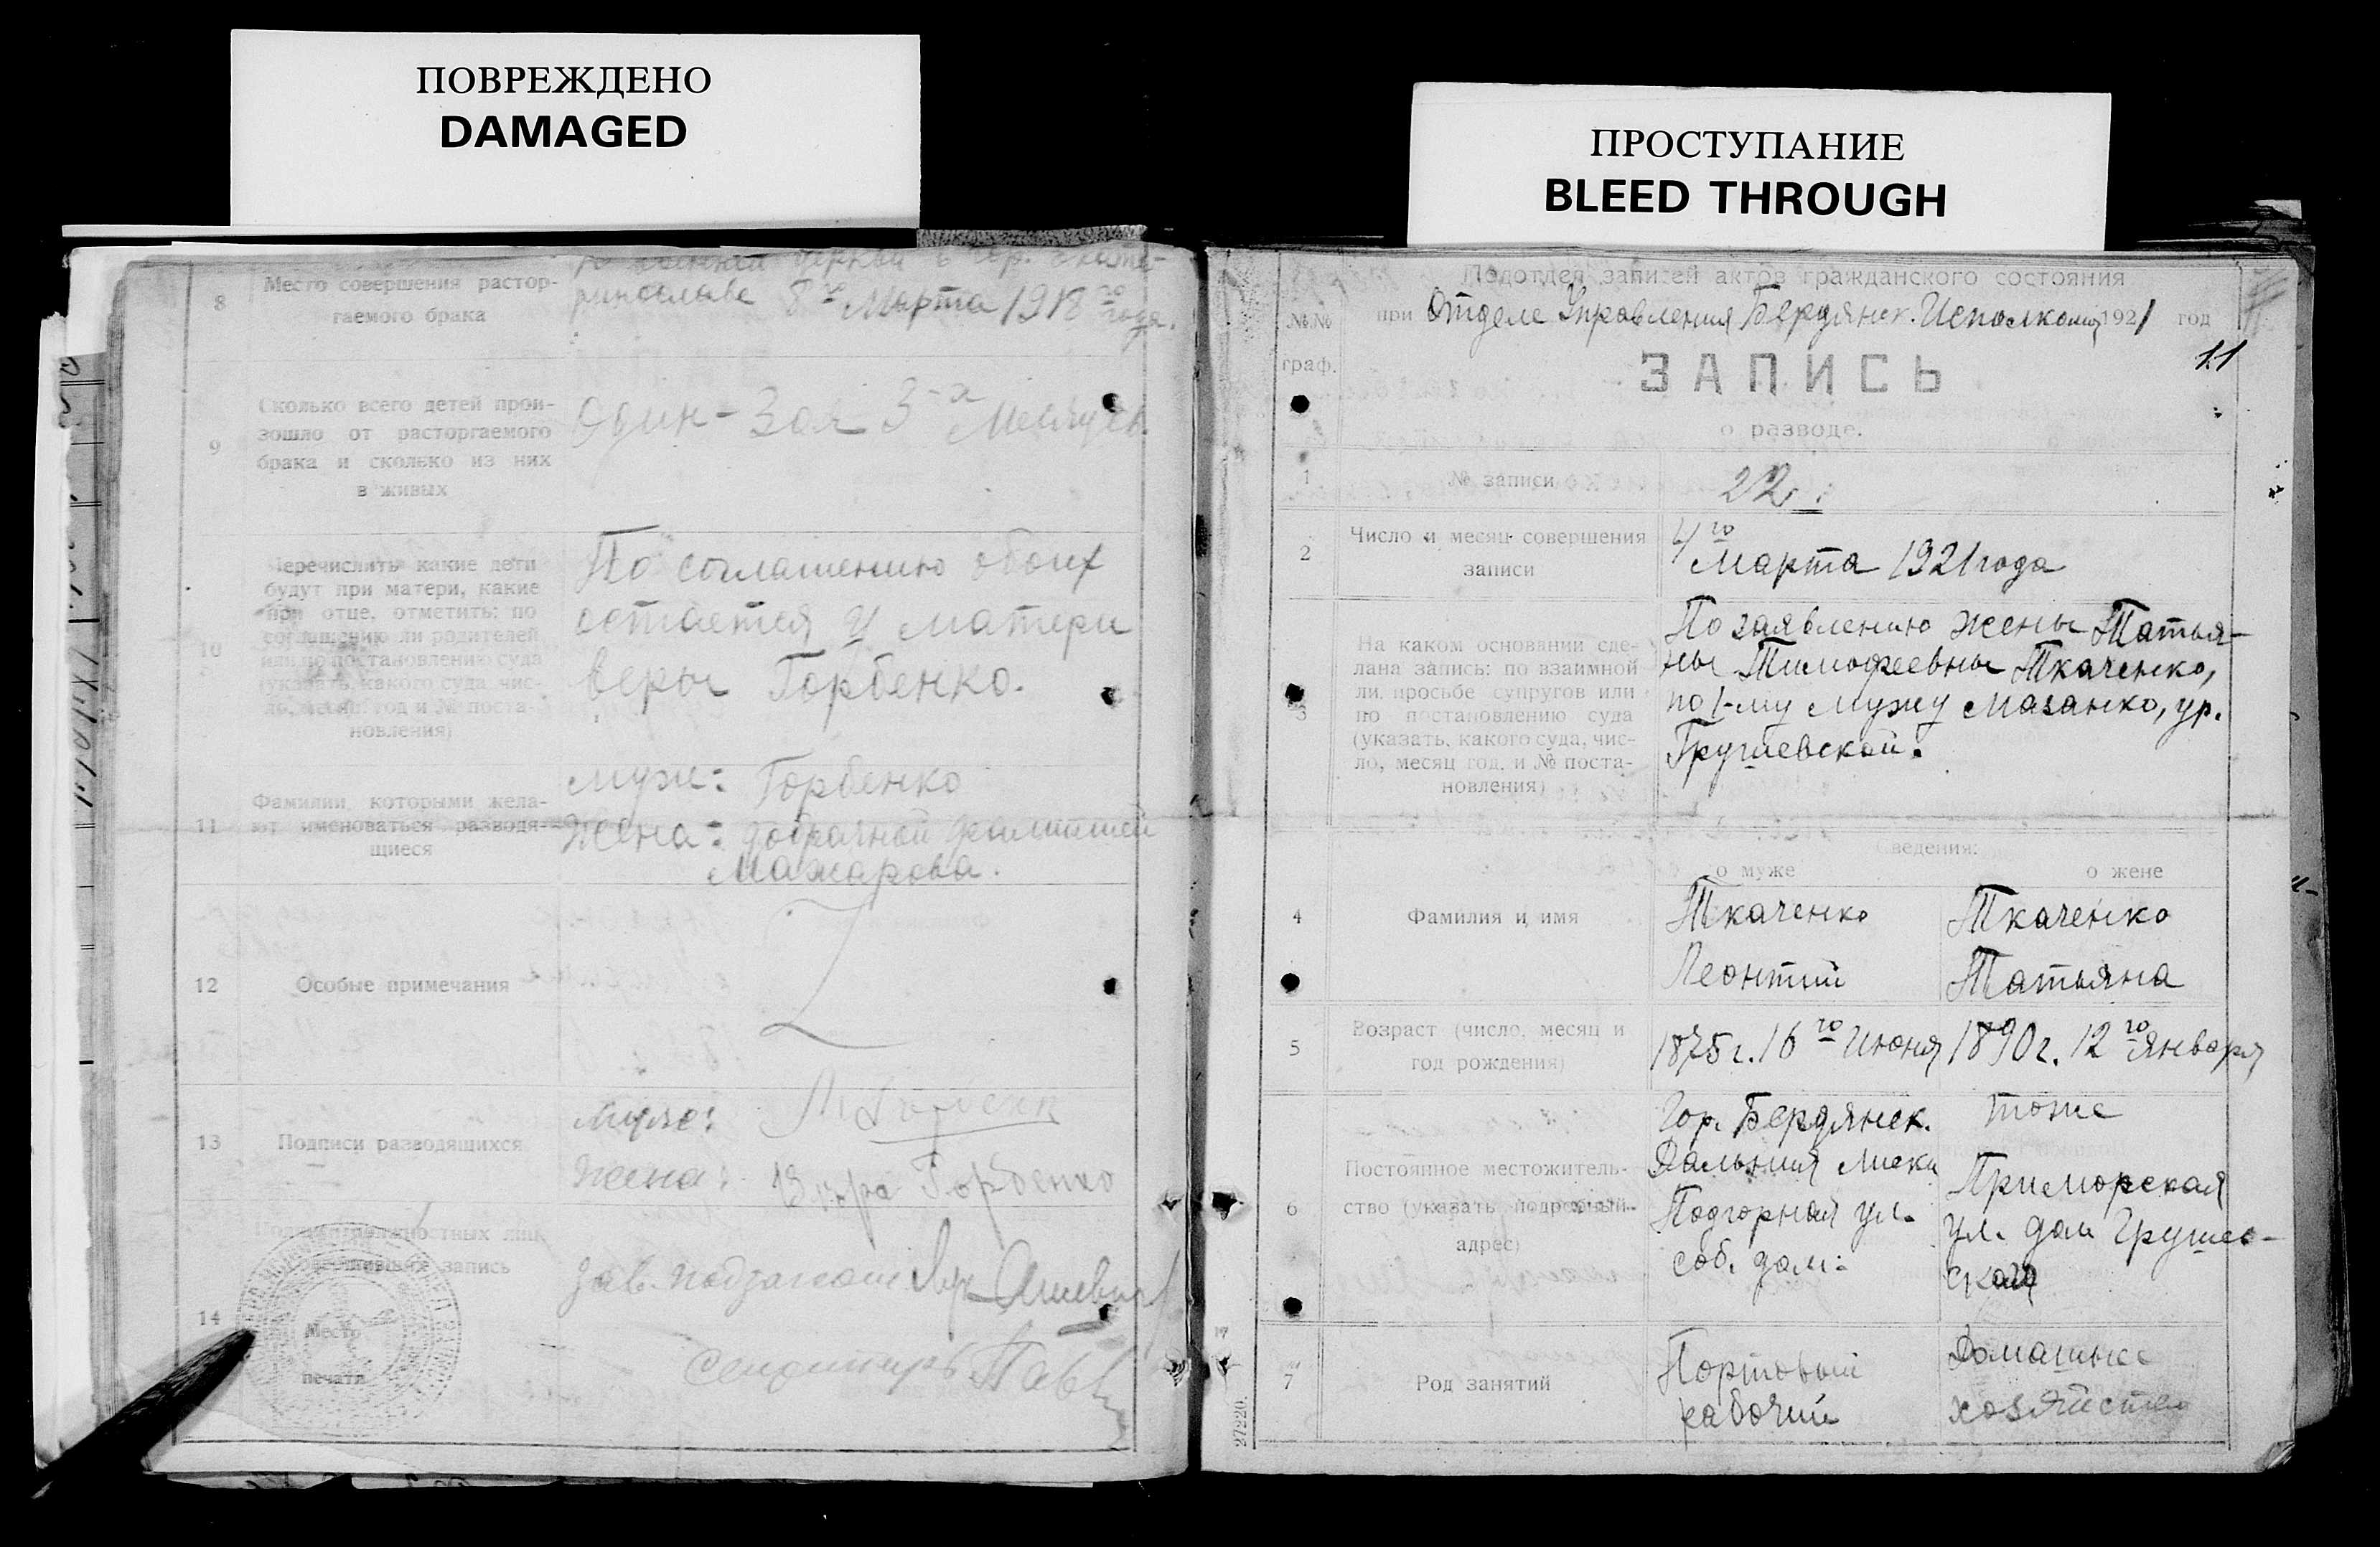 ПОВРЕЖДЕНО
DAMAGED
8
Место совершения растор-
гаемого брака
церкви в гор. Екате-
ринославе 8го Марта 1918го
года.
9
Сколько всего детей прои-
зошло от расторгаемого
брака и сколько из них
в живых
Один - Зоя 3-х месяцев.
10
Перечислить какие дети
будут при матери, какие
при отце, отметить: по
соглашению ли родителей
или по постановлению суда
(указать, какого суда, чис-
ло, месяц год и № поста-
новления)
По соглашению обоих
остается у матери
Веры Горбенко.
11
Фамилии, которыми жела-
ют именоваться разводя-
щиеся
Муж: Горбенко
Жена: добрачной фамилией
Мажарова.
12
Особые примечания
13
Подписи разводящихся
Муж:
Жена: Вера Горбенко
14
Подписи должностных лиц,
совершивших запись
Место
печати
Зав.
ПРОСТУПАНИЕ
BLEED THROUGH
№№
граф.
Подотдел записей актов гражданского состояния
при Отделе Управления Бердянск. Исполкома 1921 год
11
ЗАПИСЬ
о разводе.
1
№ записи
22.
2
Число и месяц совершения
записи
4го
Марта 1921 года
3
На каком основании сде-
лана запись: по взаимной
ли просьбе супругов или
по постановлению суда
(указать, какого суда, чис-
ло, месяц год, и № поста-
новления)
По заявлению жены Татья-
ны Тимофеевны Ткаченко,
по 1-му мужу Мазанко, ур.
Грушевской.
Сведения:
о муже
о жене
4
Фамилия и имя
Ткаченко
Леонтий
Ткаченко
Татьяна
5
Возраст (число, месяц и
год рождения)
1875 г. 16го Июня
1890 г. 12го Января
6
Постоянное местожитель-
ство (указать подробный
адрес)
Гор. Бердянск.
Дальния
Подгорная ул.
соб. дом.
тоже
Приморская
ул. дом Грушев-
ской
7
Род занятий
Портовый
рабочий
Домашнее
хозяйство
27220.